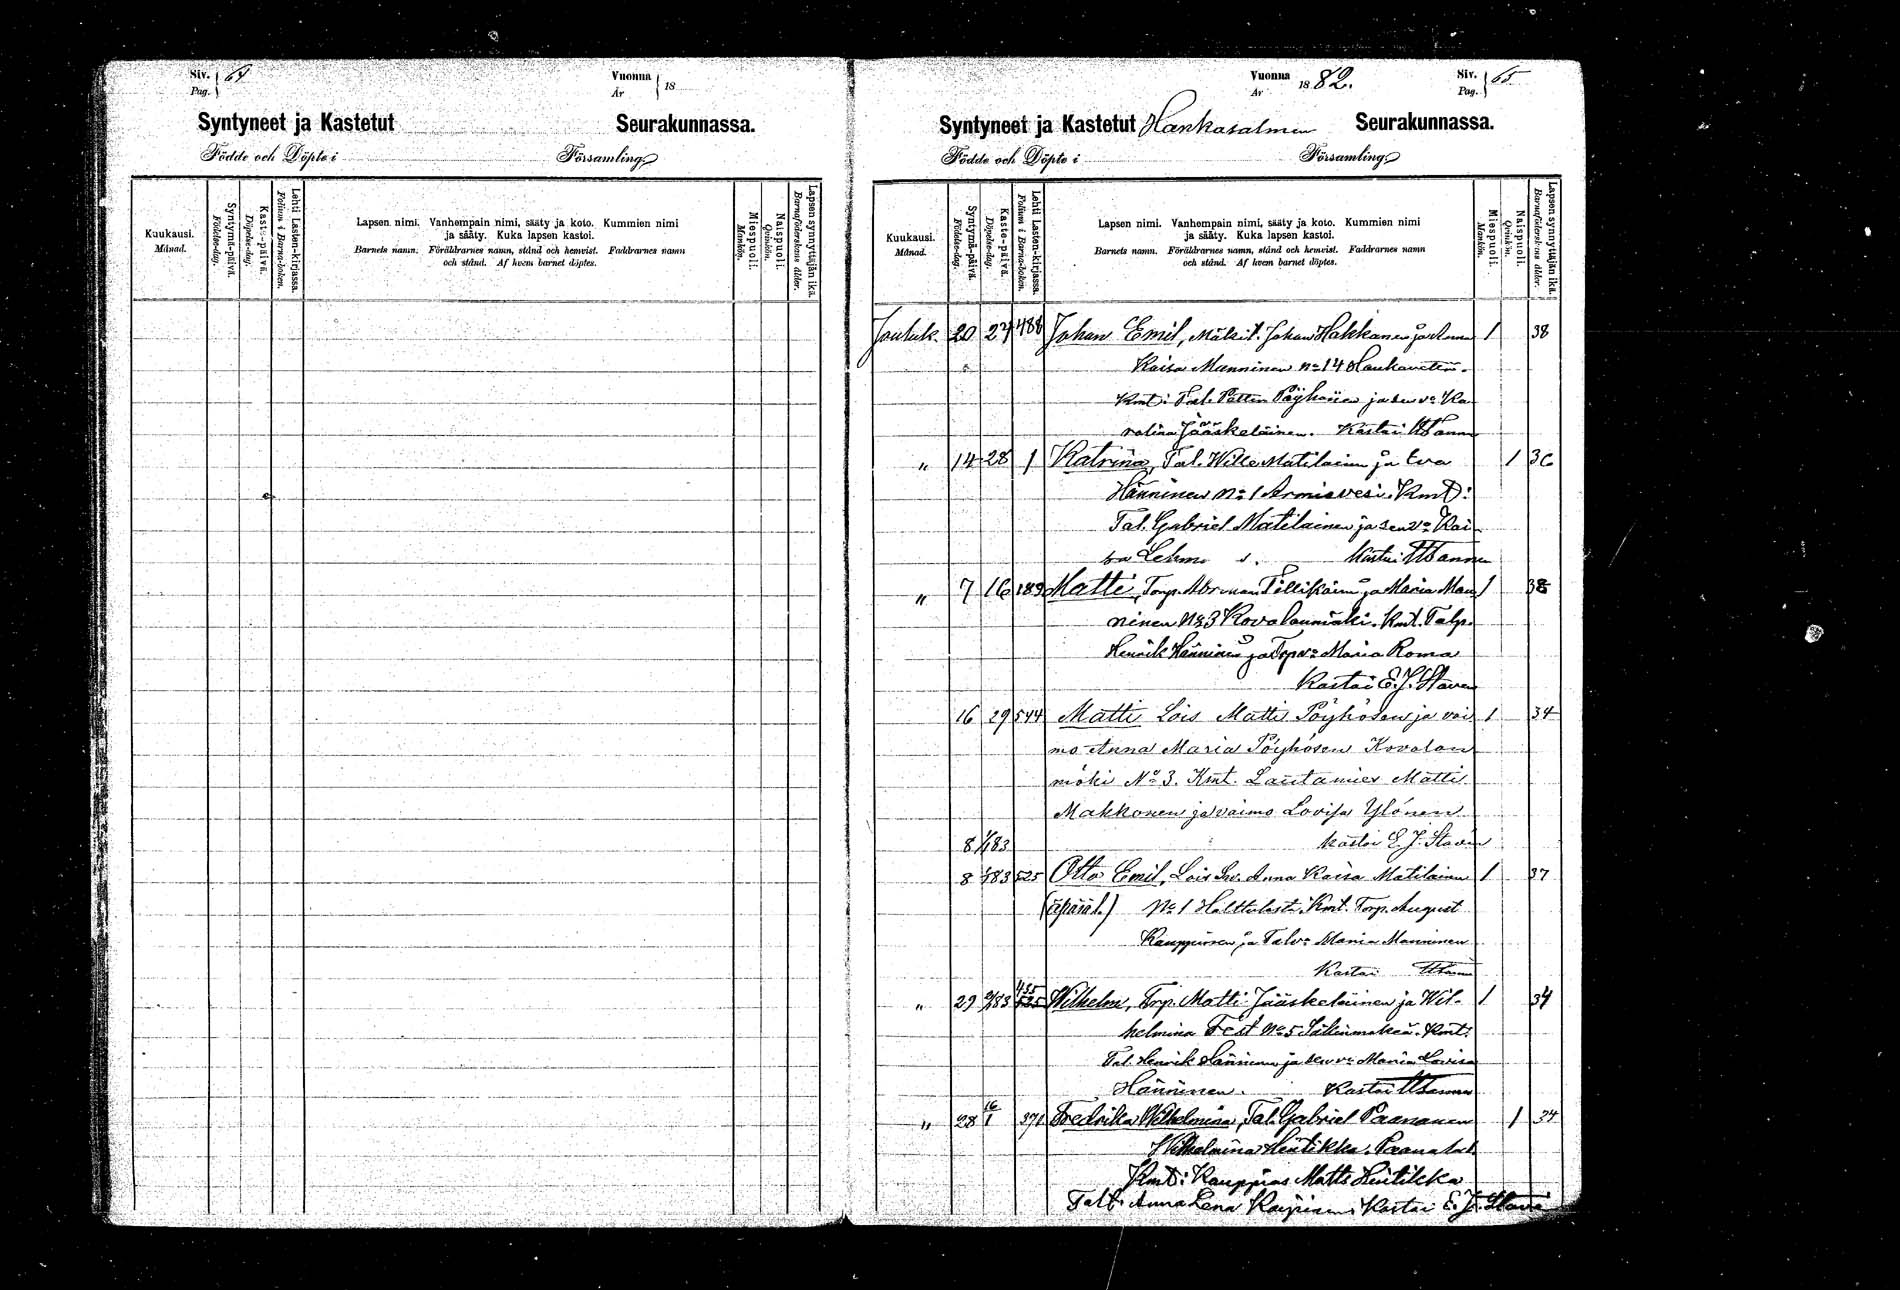 Siv. 64
Pag.
Vuonna 18
År
Syntyneet ja Kastetut Seurakunnassa.
Födde och Döpte i Församling
Kuukausi.
Månad.
Syntymä-päivä.
Födelse-dag.
Kaste-päivä.
Döpelse-dag.
Lehti Lasten-kirjassa.
Folium i Barna-boken.
Lapsen nimi. Vanhempain nimi, sääty ja koto. Kummien nimi
ja sääty. Kuka lapsen kastoi.
Barnets namn. Föräldrarnes namn, stånd och hemvist. Faddrarnes namn
och stånd. Af hvem barnet döptes.
Miespuoli.
Mankön.
Naispuoli.
Qvinkön.
Lapsen synnyttäjän ikä.
Barnaföderskans ålder.
Vuonna 1882.
År
Siv. 65
Pag.
Syntyneet ja Kastetut Hankasalmen Seurakunnassa.
Födde och Döpte i Församling
Kuukausi.
Månad.
Syntymä-päivä.
Födelse-dag.
Kaste-päivä.
Döpelse-dag.
Lehti Lasten-kirjassa.
Folium i Barna-boken.
Lapsen nimi. Vanhempain nimi, sääty ja koto. Kummien nimi
ja sääty. Kuka lapsen kastoi.
Barnets namn. Föräldrarnes namn, stånd och hemvist. Faddrarnes namn
och stånd. Af hvem barnet döptes.
Miespuoli.
Mankön.
Naispuoli.
Qvinkön.
Lapsen synnyttäjän ikä.
Barnaföderskans ålder.
Jouluk. 20 27 488 Johan Emil, Mäkit. Johan Hakkanen ja Anna 1 38
Kaisa Manninen No 14
Kmt: Tal. Petter Pöyhönen ja sen vo Ka
rolina Jääskeläinen. Kastoi
" 14 28 1 Katrina, Tal. Wille Matilainen ja Eva 1 36
Hänninen No 1 Armisvesi. Kmt:
Tal. Gabriel Matilainen ja sen vo Kai
sa Kastoi
" 7 16 189 Matti, Torp. Abraham Tillikainen ja Maria Man 1 38
ninen No 3 Kovalanmäki. Kmt. Talp.
Henrik Hänninen ja Trp vo Maria Roma
Kastoi E. J. Staven
16 29 544 Matti Lois Matti Pöyhösen ja vai 1 34
mo Anna Maria Pöyhösen Kovolan
mäki No 3. Kmt. Lautamies Matti
Makkonen ja vaimo Lovisa Ylönen
8 1/1 83 kastoi E. J. Stavén
8 1/1 83 525 Otto Emil, Lois Anna Kaisa Matilainen 1 37
(äpärä l.) No 1 Kmt. Torp. August
Kauppinen ja Tal vo Maria Manninen
Kastoi
" 29 83 435 525 Wilhelm, Trp. Matti Jääskeläinen ja Wil- 1 34
helmina Fest No 5 Kmt:
Tal. Henrik Hänninen ja sen vo Maria Lovisa
Hänninen. Kastoi
" 28 16/1 371 Fredrika Wilhelmina, Tal. Gabriel Paananen 1 24
Wilhelmina Hintikka.
Kmt: Kauppias Matti Hintikka
Anna Lena Kastoi E. J. Stavén